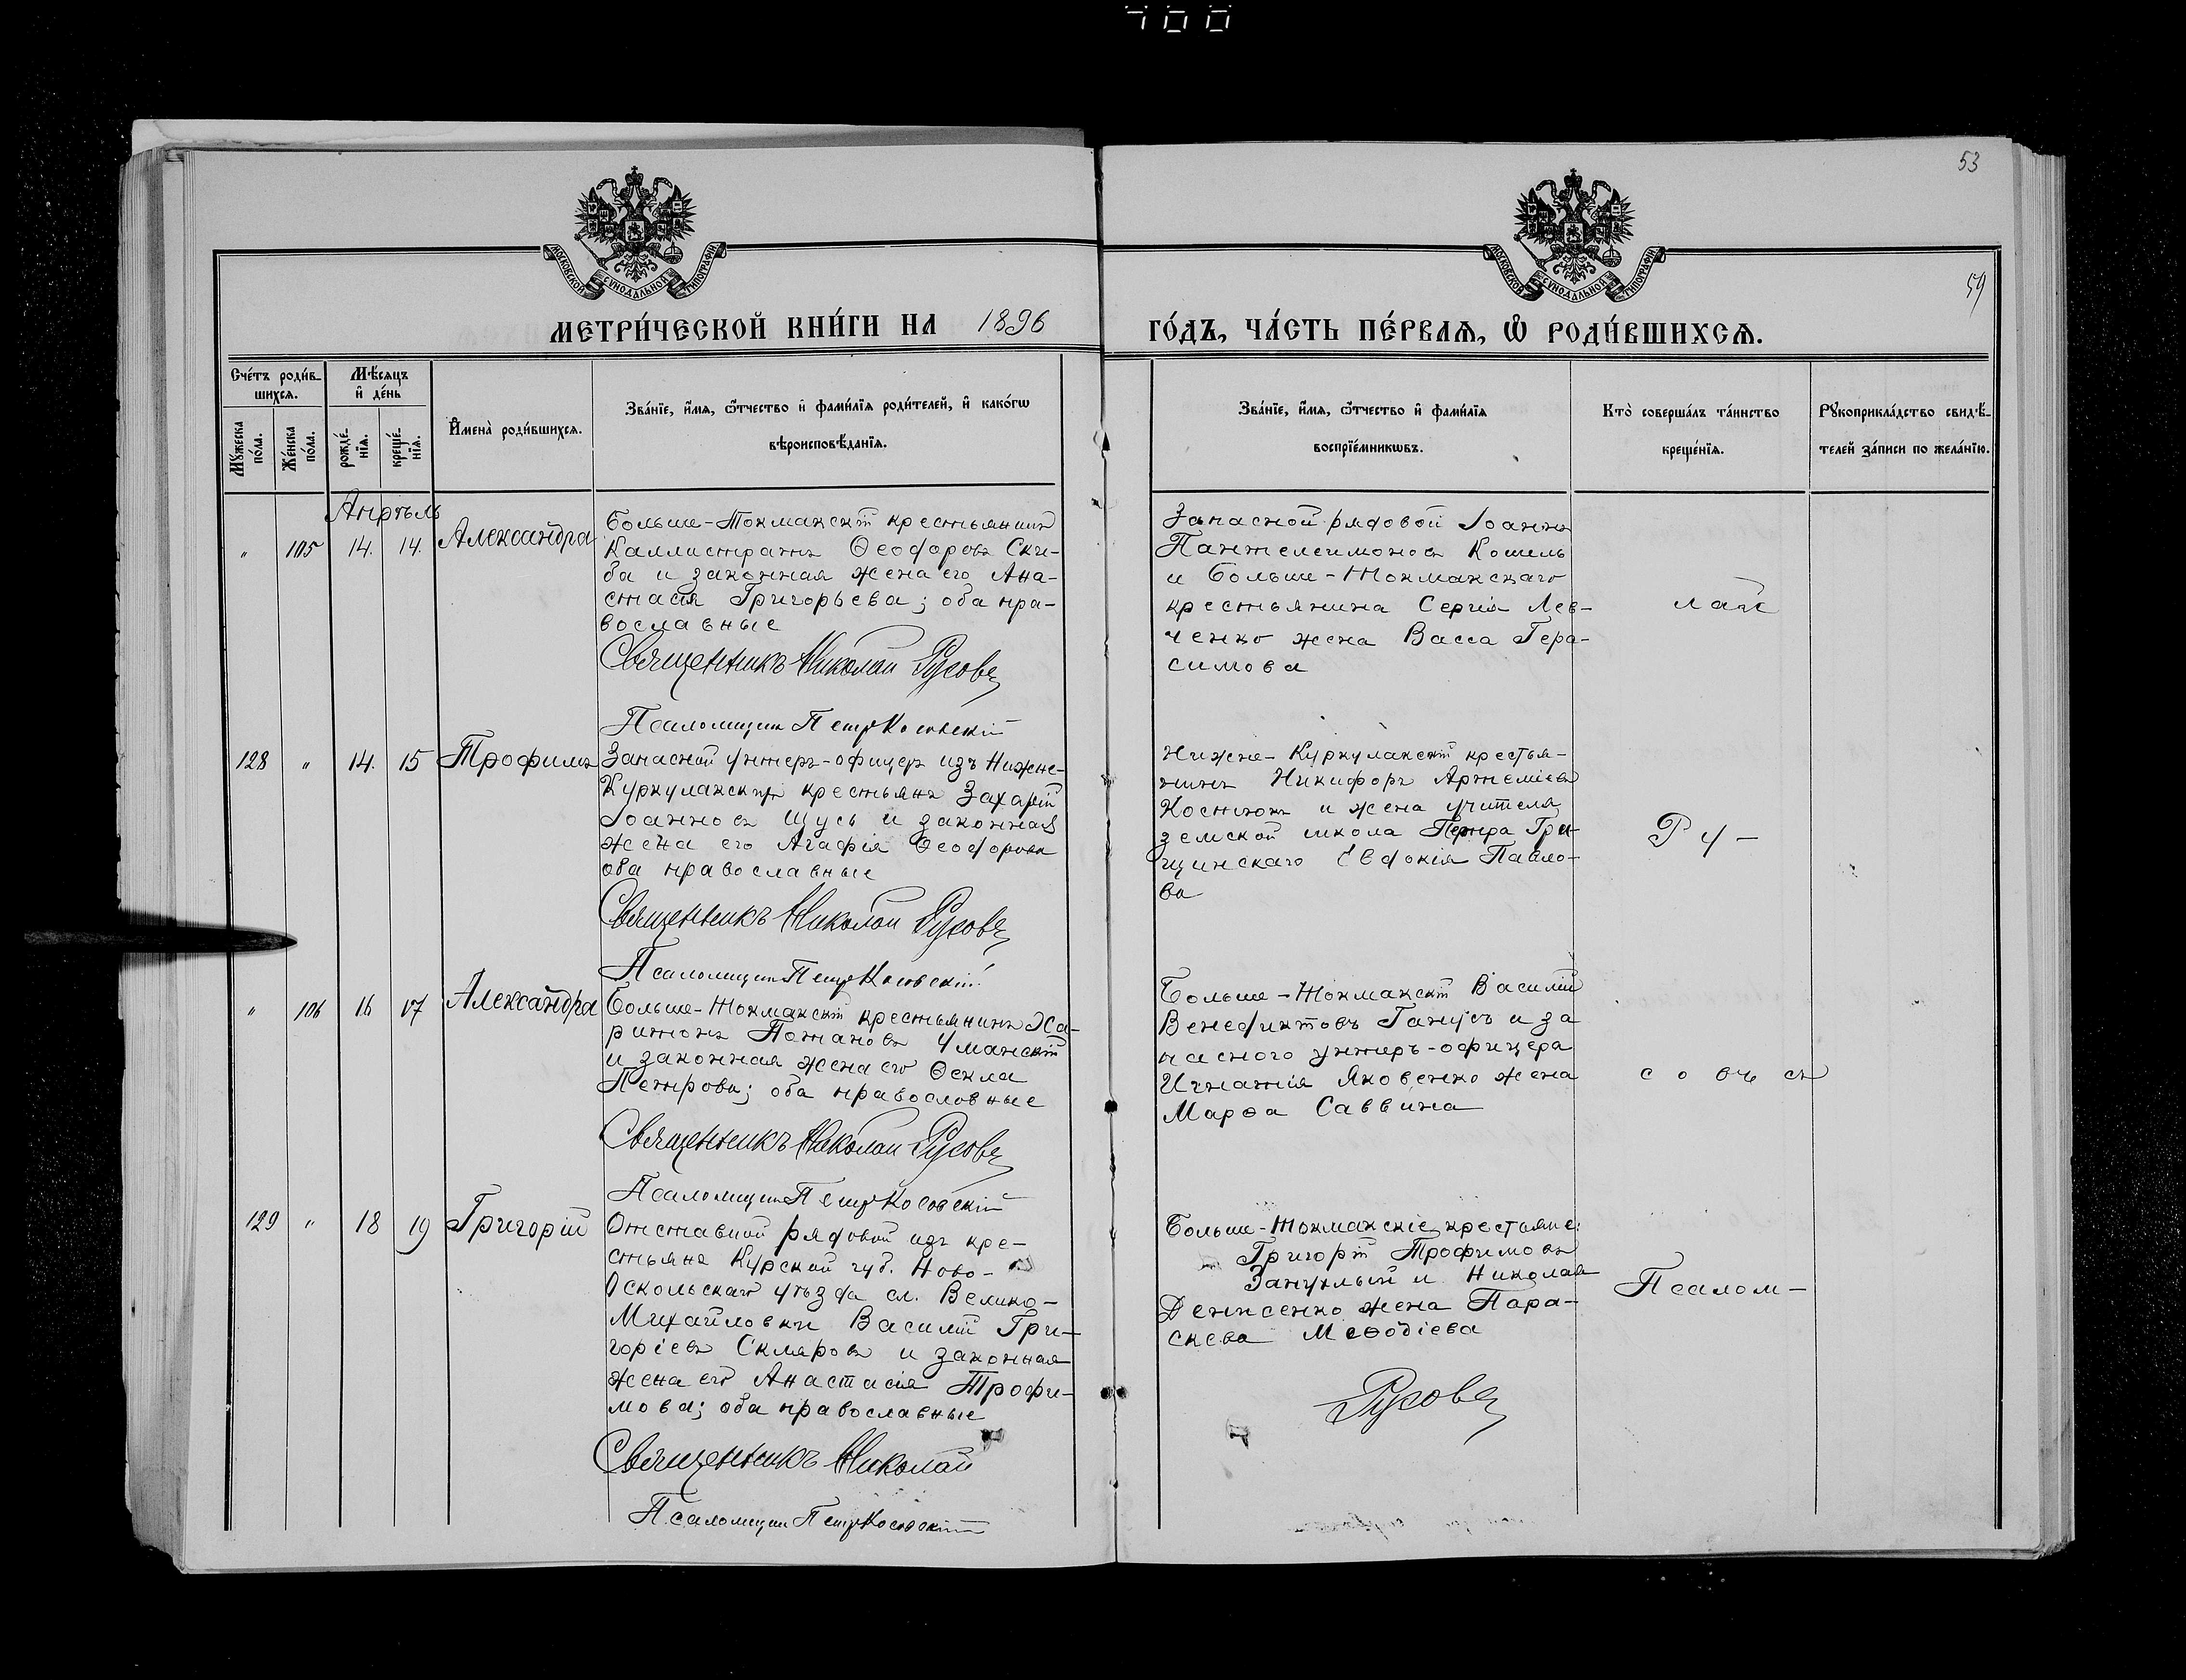 700
53
59
МОСКОВСКОЙ СУНОДАЛЬНОЙ ТИПОГРАФІИ
МОСКОВСКОЙ СУНОДАЛЬНОЙ ТИПОГРАФІИ
МЕТРИ́ЧЕСКОЙ КНИ́ГИ НА 1896
ГО́ДЪ, ЧА́СТЬ ПЕ́РВАѦ, Ѡ҆ РОДИ́ВШИХСѦ.
Сче́тъ роди́в-
шихсѧ.
Мѣ́сѧцъ
и҆ де́нь
Мꙋ́жеска по́ла.
Же́нска по́ла.
рожде́-
нїѧ.
креще́-
нїѧ.
И҆мена̀ роди́вшихсѧ.
Зва́нїе, и҆́мѧ, ѻ҆́тчество и҆ фамі́лїѧ роди́телей, и҆ како́гѡ
вѣроисповѣ́данїѧ.
Зва́нїе, и҆́мѧ, ѻ҆́тчество и҆ фамі́лїѧ
воспрїе́мникѡвъ.
Кто̀ соверша́лъ та́инство
креще́нїѧ.
Рꙋкоприкла́дство свидѣ́-
телей за́писи по жела́нїю.
Апрѣль
" 105 14. 14. Александра
Больше-Токмакскій крестьянинъ
Каллистратъ Ѳеодоровъ Ски-
ба и законная жена его Ана-
стасія Григорьева; оба пра-
вославные
Священникъ Николай Русовъ
Псаломщикъ Петръ Косовскій
Запасной рядовой Іоаннъ
Пантелеимоновъ Кошель
и Больше-Токмакскаго
крестьянина Сергія Лев-
ченко жена Васса Гера-
симова
лай
128 " 14. 15 Трофимъ
Запасной унтеръ-офицеръ изъ Нижне-
Куркулакскихъ крестьянъ Захарій
Іоанновъ Щусь и законная
жена его Агафія Ѳеодорова
оба православные
Священникъ Николай Русовъ
Псаломщикъ Петръ Косовскій
Нижне-Куркулакскій крестья-
нинъ Никифоръ Артеміевъ
Костюкъ и жена учителя
земской школа Петра Гри-
щинскаго Евдокія Павло-
ва
Ру-
" 106 16 17 Александра
Больше-Токмакскій крестьянинъ Ха-
ритонъ Потаповъ Уманскій
и законная жена его Ѳекла
Петрова; оба православные
Священникъ Николай Русовъ
Псаломщикъ Петръ Косовскій
Больше-Токмакскій Василій
Венедиктовъ Ганусъ и за
паснаго унтеръ-офицера
Игнатія Яковенко жена
Марѳа Саввина
совъ съ
129 " 18 19 Григорій
Отставной рядовой изъ кре-
стьянъ Курской губ. Ново-
Оскольскаго уѣзда сл. Велико-
Михайловки Василій Гри-
горіевъ Скляровъ и законная
жена его Анастасія Трофи-
мова; оба православные
Священникъ Николай
Псаломщикъ Петръ Косовскій
Больше-Токмакскіе крестьяне:
Григорій Трофимовъ
и Николая
Денисенко жена Пара-
скева Меѳодіева
Русовъ
Псалом-